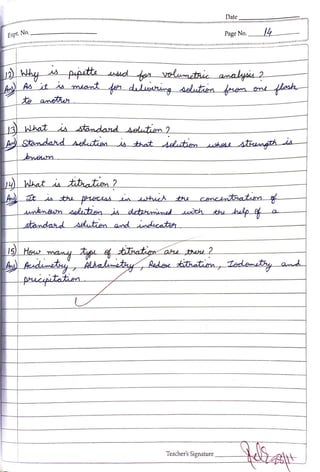 Date
Expt. No.
Page No. 14
12) Why is pipette used for volumetric analysis?
Ans) As it is meant for delivering solution from one flask
to another.
13) What is standard solution?
Ans) Standard solution is that solution whose strength is
known.
14) What is titration?
Ans) It is the process in which the concentration of
unknown solution is determined with the help of a
standard solution and indicator.
15) How many type of titration are there?
Ans) Acidimetry, Alkalimetry, Redox titration, Iodometry and
precipitation.
Teacher's Signature